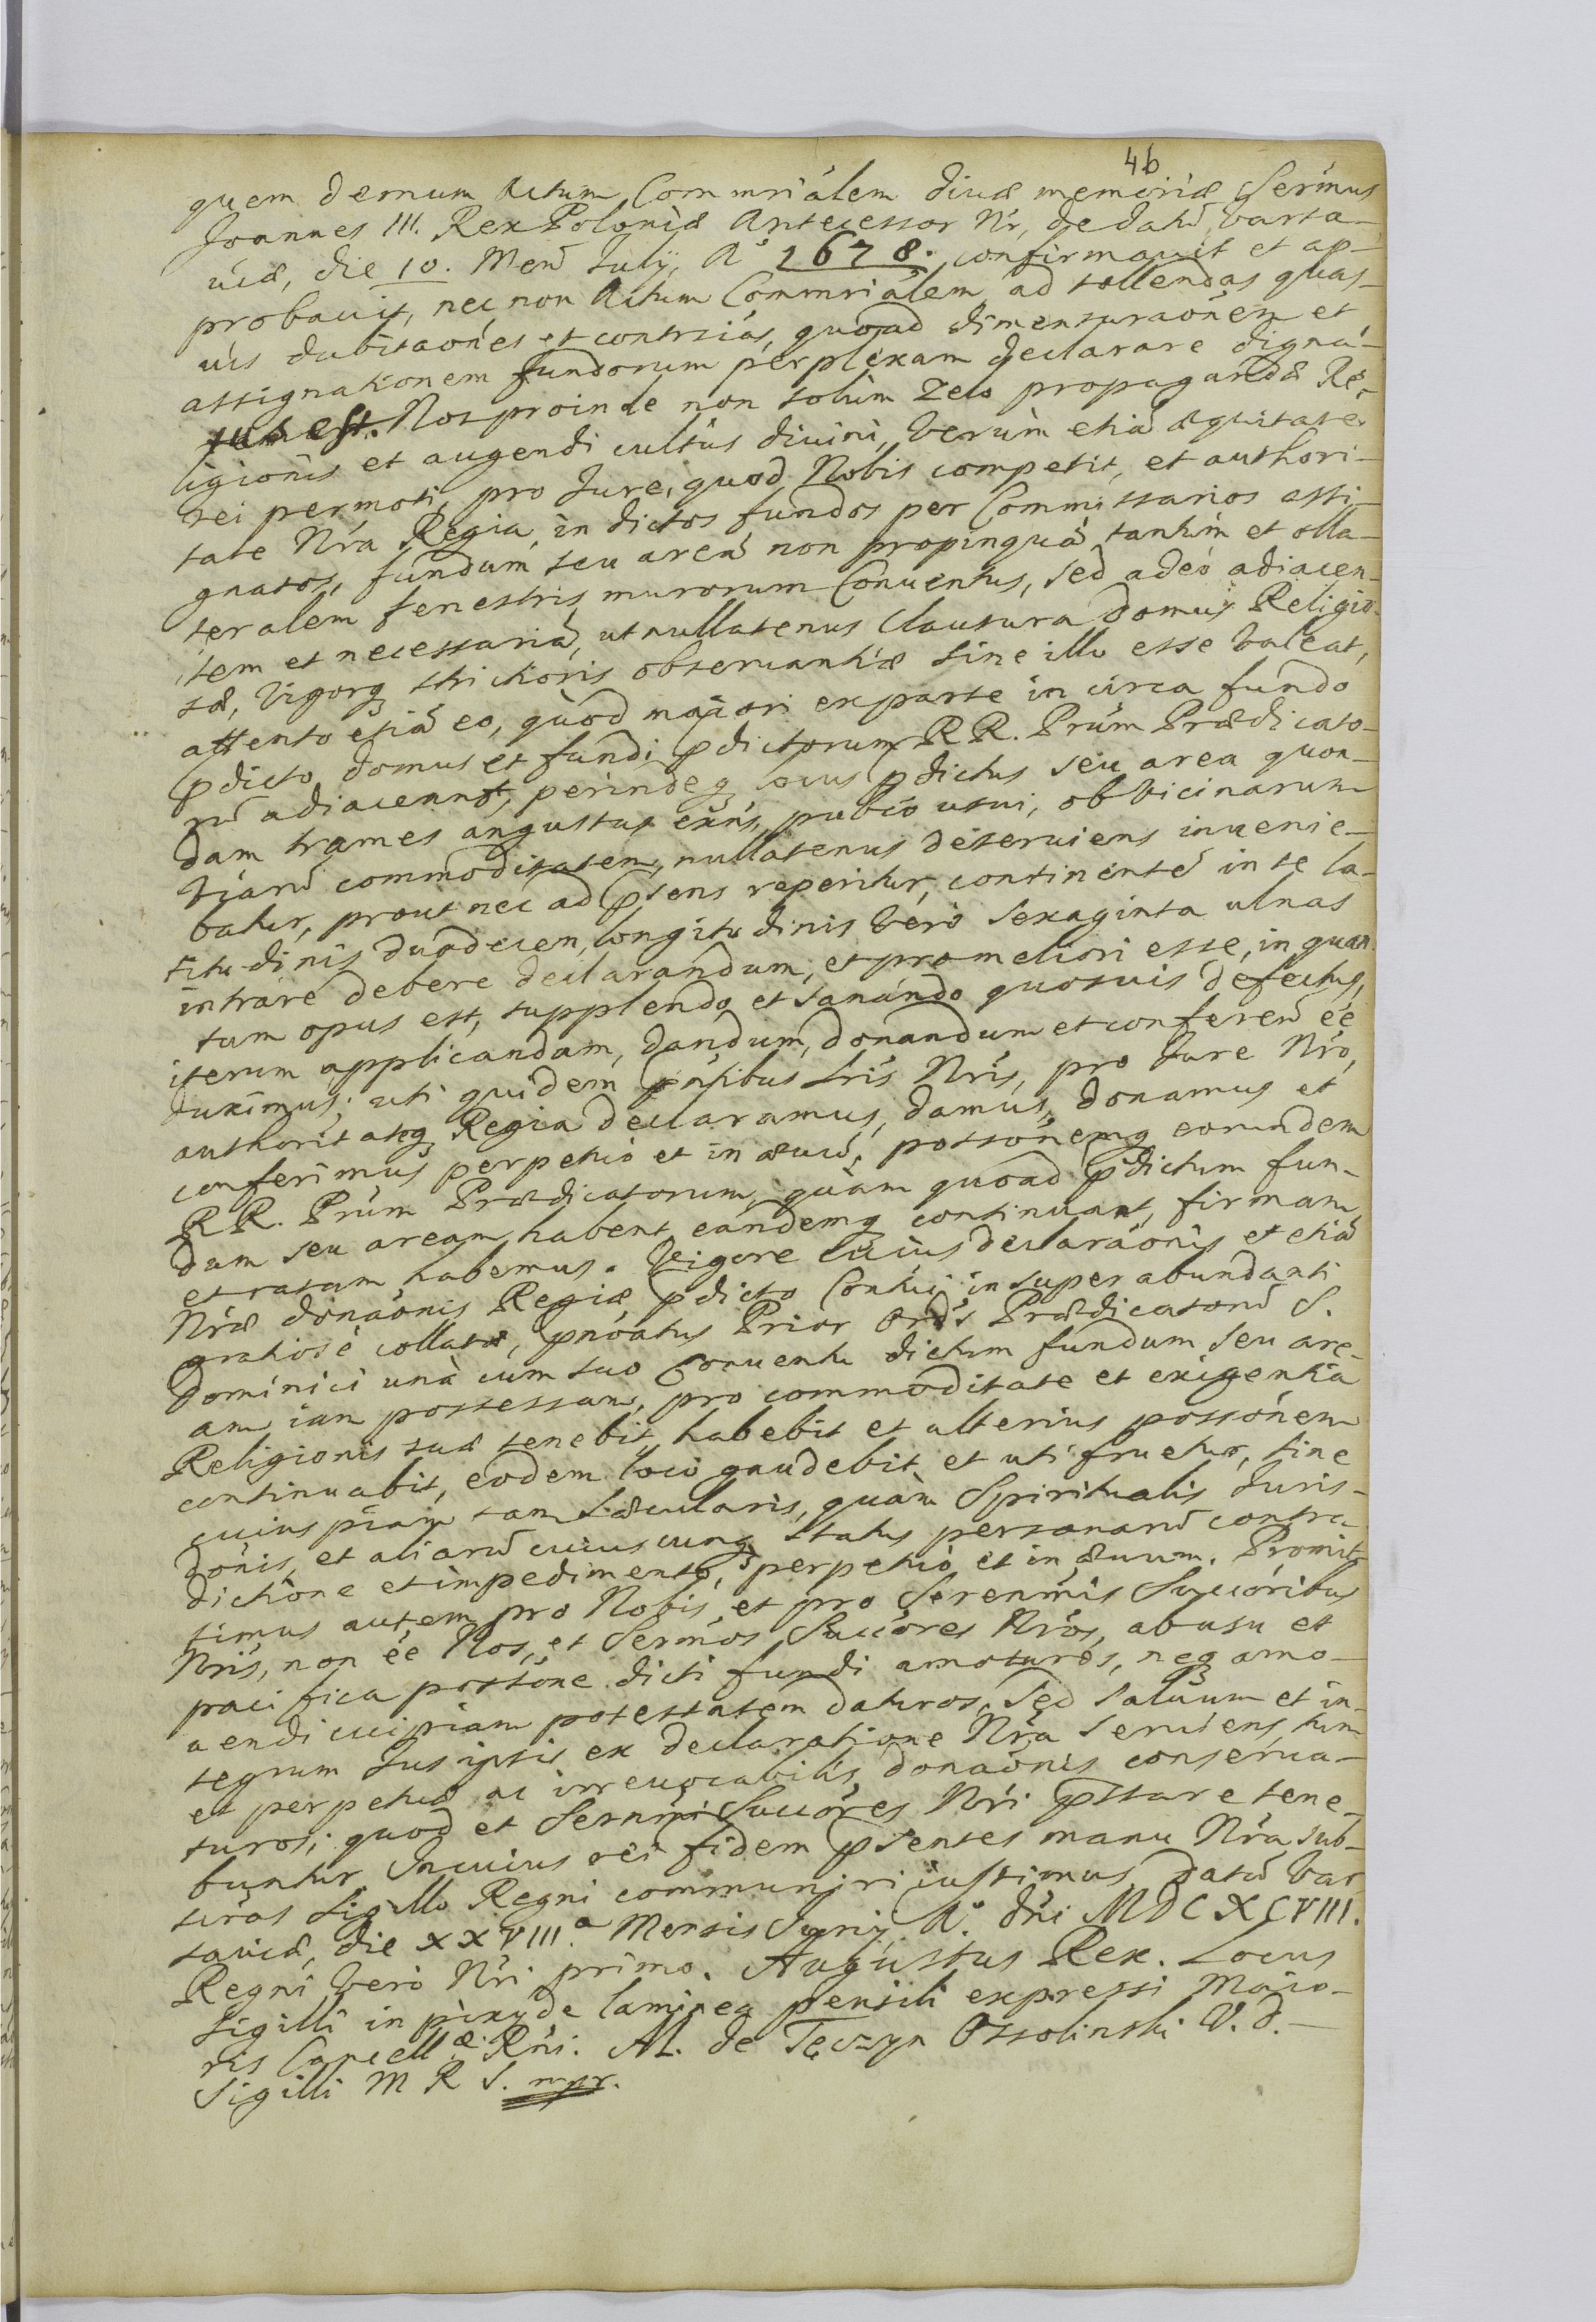 4b
quem demum Actum Commriálem diuæ memoriæ Sermus
Joannes III. Rex Poloniæ Antecessor Nr, de datū Varsa-
uiæ, die 10. Men̄ Julÿ, A° 1678. confirmauit et ap-
probauit, nec non Actum Commriálem ad tollendas quas-
uis dubitaónes et contrsiás, quoad dimensuraónem et
assignationem fundorum perplexam declarare digna-
tus est. Nos proinde non solùm zelo propagandæ Re-
ligionis et augendi cultûs diuini, verùm etiā æquitate
rei permoti, pro Jure, quod Nobis competit, et authori-
tate Nra Regia, in dictos fundos per Commissarios assi-
gnatos, fundum seu areā non propinquā tantùm et olla-
teralem fenestris murorum Conuentus, sed adeò adiacen-
tem et necessariā, ut nullatenus Clausura domus Religio-
sæ, vigorq strictioris obseruantiæ sine illo esse valeat,
attento etiā eo, quòd maiori ex parte in circa fundo
pdicto domus et fundi pdictorum RR. Prúm Prædicato-
rū adiaceant, perindeq locus pdictus seu area quon-
dam trames angustus exńs, publco usui, ob vicinarum
viarū commoditatem, nullatenus deseruiens inuenie-
batur, prout nec ad psens reperitur, continentē in se la-
titudinis duodecem, longitudinis verò sexaginta ulnas
intrare debere declarandum, et pro meliori esse, in quan-
tum opus est, supplendo et sanándo quosuis defectus,
iterum applicandam, dandum, donandum et conferen̄ éé
duximus; uti quidem pntibus Lris Nris, pro Jure Nro,
authoritateq Regia declaramus, damus, donamus et
conferimus perpetuò et in æuū, possónemq eorundem
RR. Prúm Prædicatorum, quam quoad pdictum fun-
dum seu aream habent eandemq continuant, firmam
et ratam habemus. Vigore cuius declaraónis et etiā
Nræ donaónis Regiæ pdicto Contui in superabundanti
gratiosè collatæ, pnóatus Prior Ordś Prædicatorū S.
Dominici unà cum suo Conuentu dictum fundum seu are-
am iam possessam, pro commoditate et exigentia
Religionis suæ tenebit, habebit et ulterius possónem
continuabit, eodem loco gaudebit et uti fruetur, sine
cuiuspiam tam Sæcularis, quàm Spiritualis Juris-
dónis, et aliarū cuiuscunq status personarū contra-
dictione et impedimento, perpetuò et in æuum. Promit-
timus autem pro Nobis, et pro Serenmis Succóribus
Nris, non éé Nos, et Sermos Succóres Nros, ab usu et
pacifica possóne dicti fundi amoturos, neq amo-
uendi cuipiam potestatem daturos, sed saluum et in-
tegrum Jus ipsis ex declaratione Nra seruiens, tum
et perpetuæ ac irreuocabilis donaónis conserua-
turos; quod et Sernmi Succóres Nri pstare tene-
buntur. In cuius rei fidem psentes manu Nra sub-
scras Sigillo Regni communiri iussimus. Datū Var-
sauiæ, die XXVIII.a Mensis Junij, A°. Dni MDCXCVIII.
Regni verò Nri primo. Augustus Rex. Locus
Sigilli in pixyde laminea pensili expressi Maio-
ris Cancellæ Rni. Al. de Tęczyn Ossolinski V.D.
Sigilli M R S. mpr.